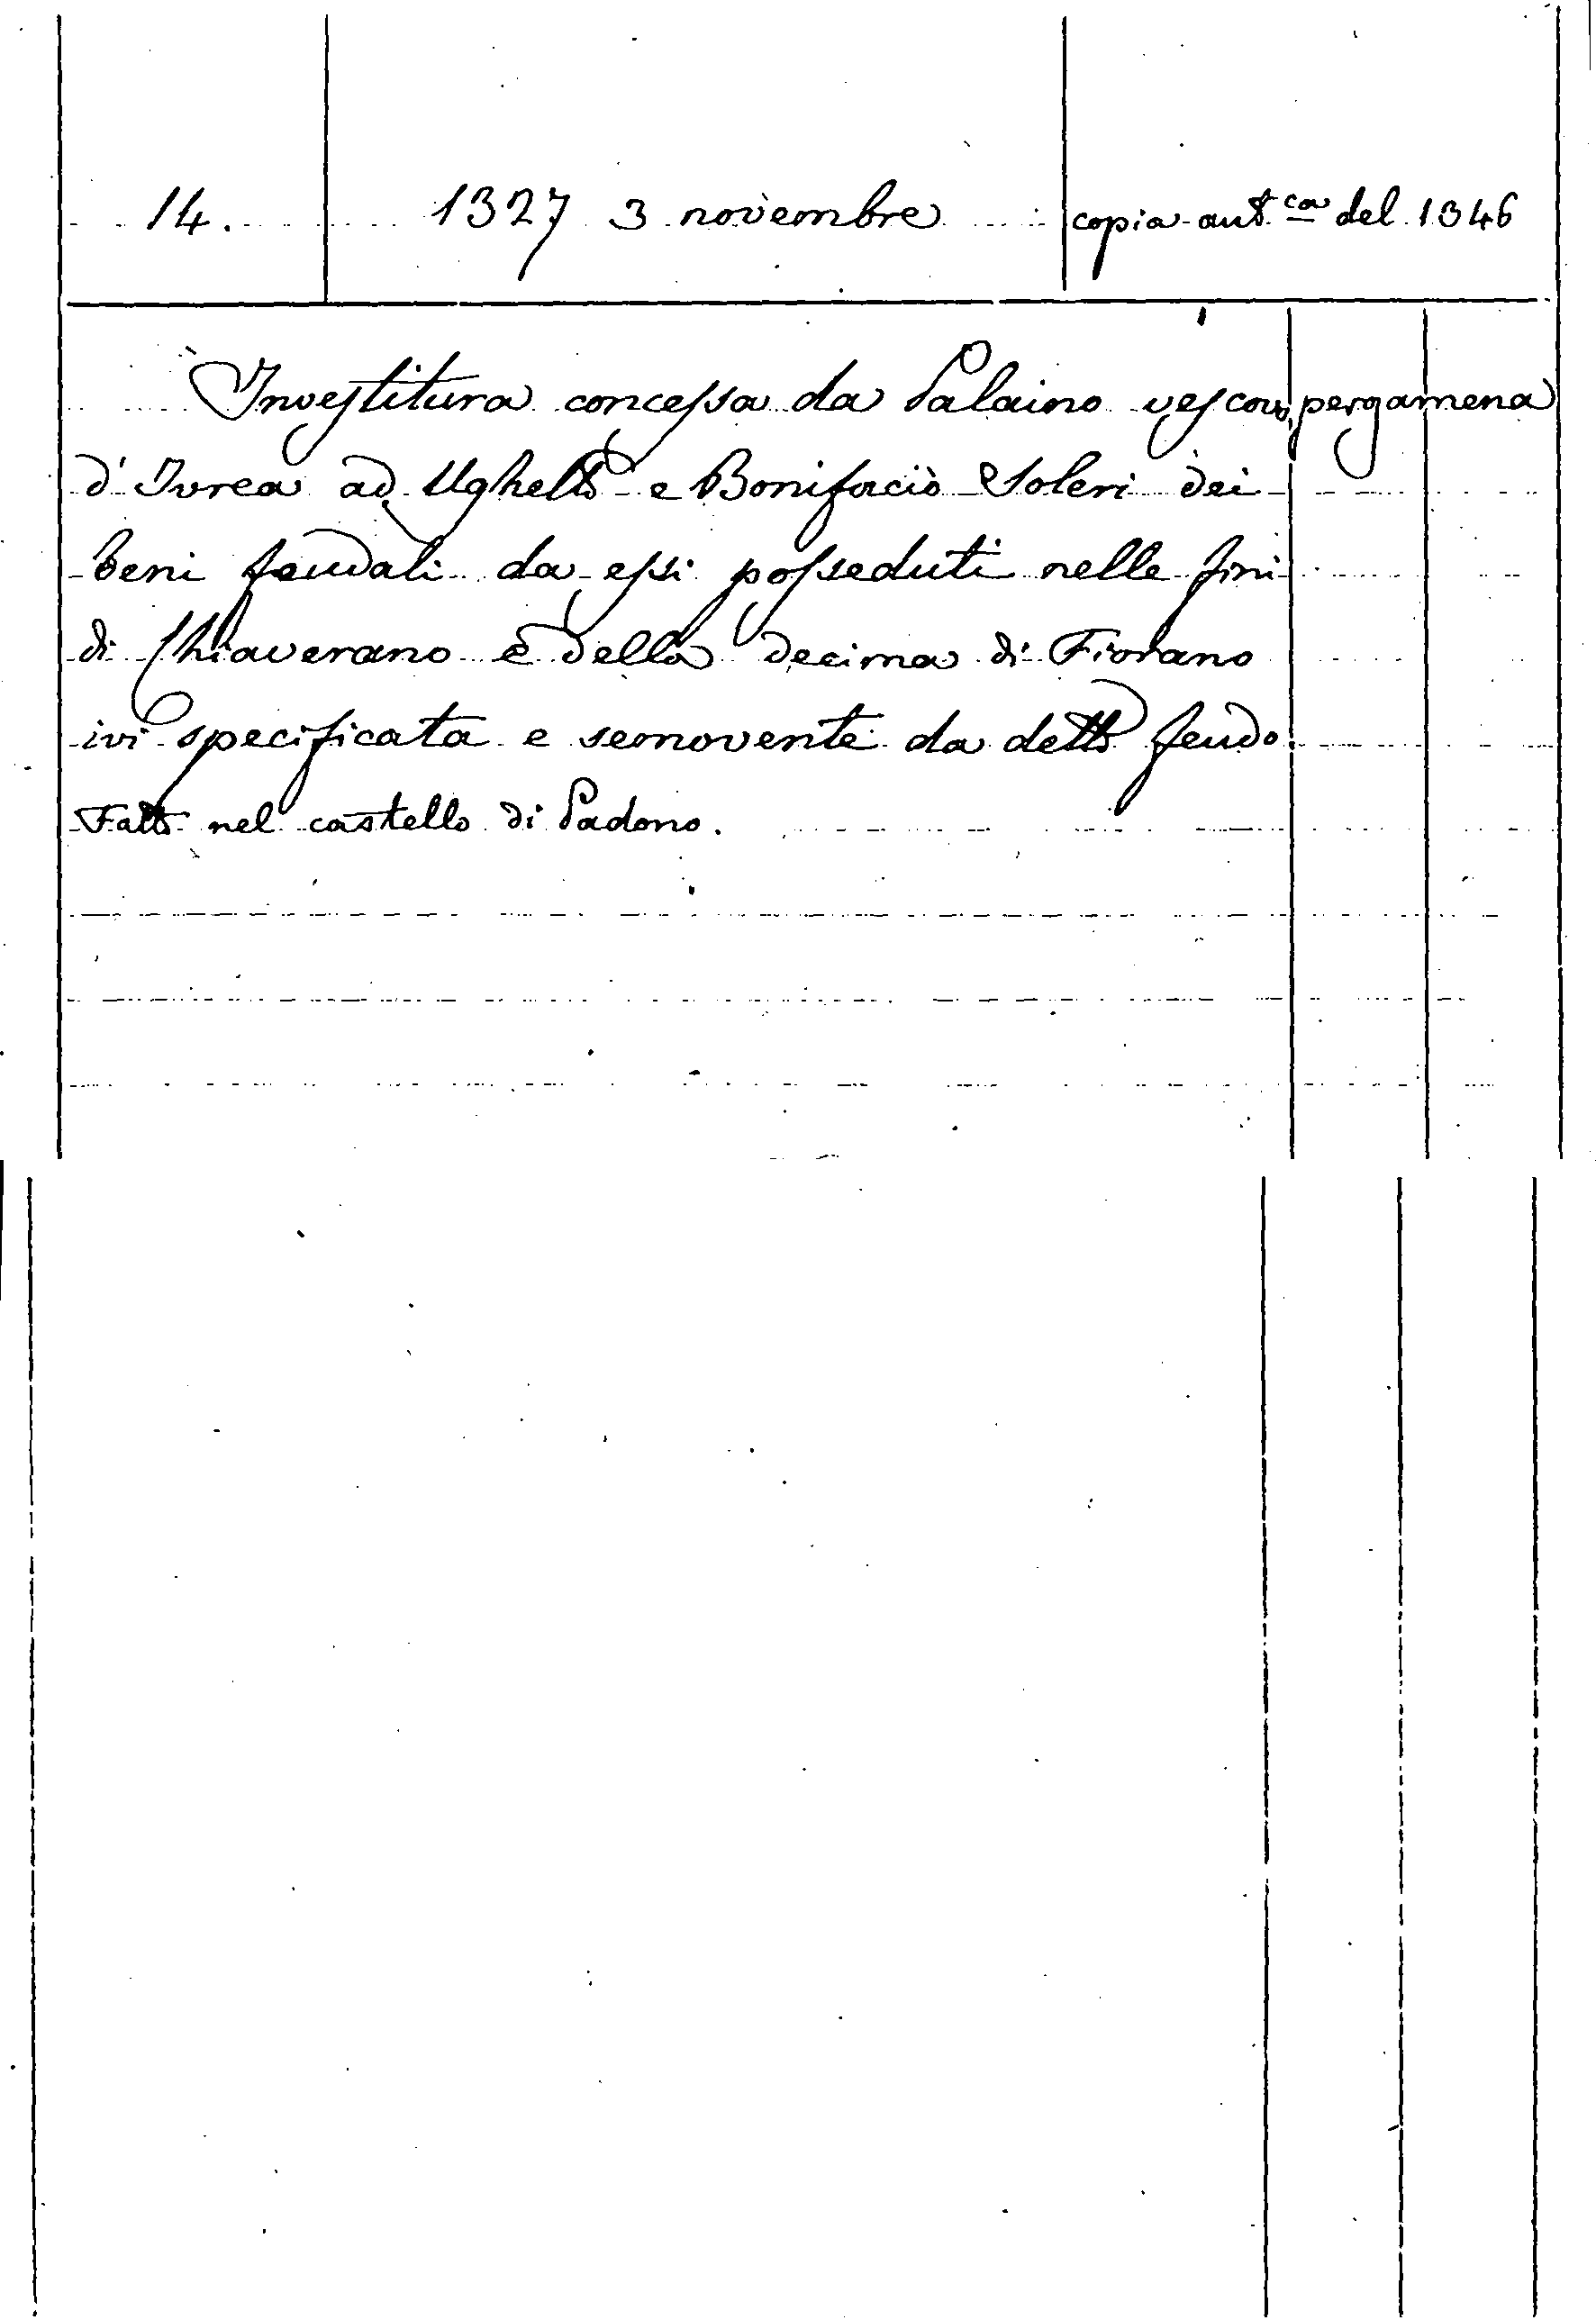 14. 1327 3 novembre copia aut.ca del 1346
Investitura concessa da Palaino vescovo pergamena
d'Ivrea ad Ughetto e Bonifacio Soleri dei
beni feudali da essi posseduti nelle fini
di Chiaverano e della decima di Fiorano
ivi specificata e semovente da detto feudo.
Fatto nel castello di Padono.